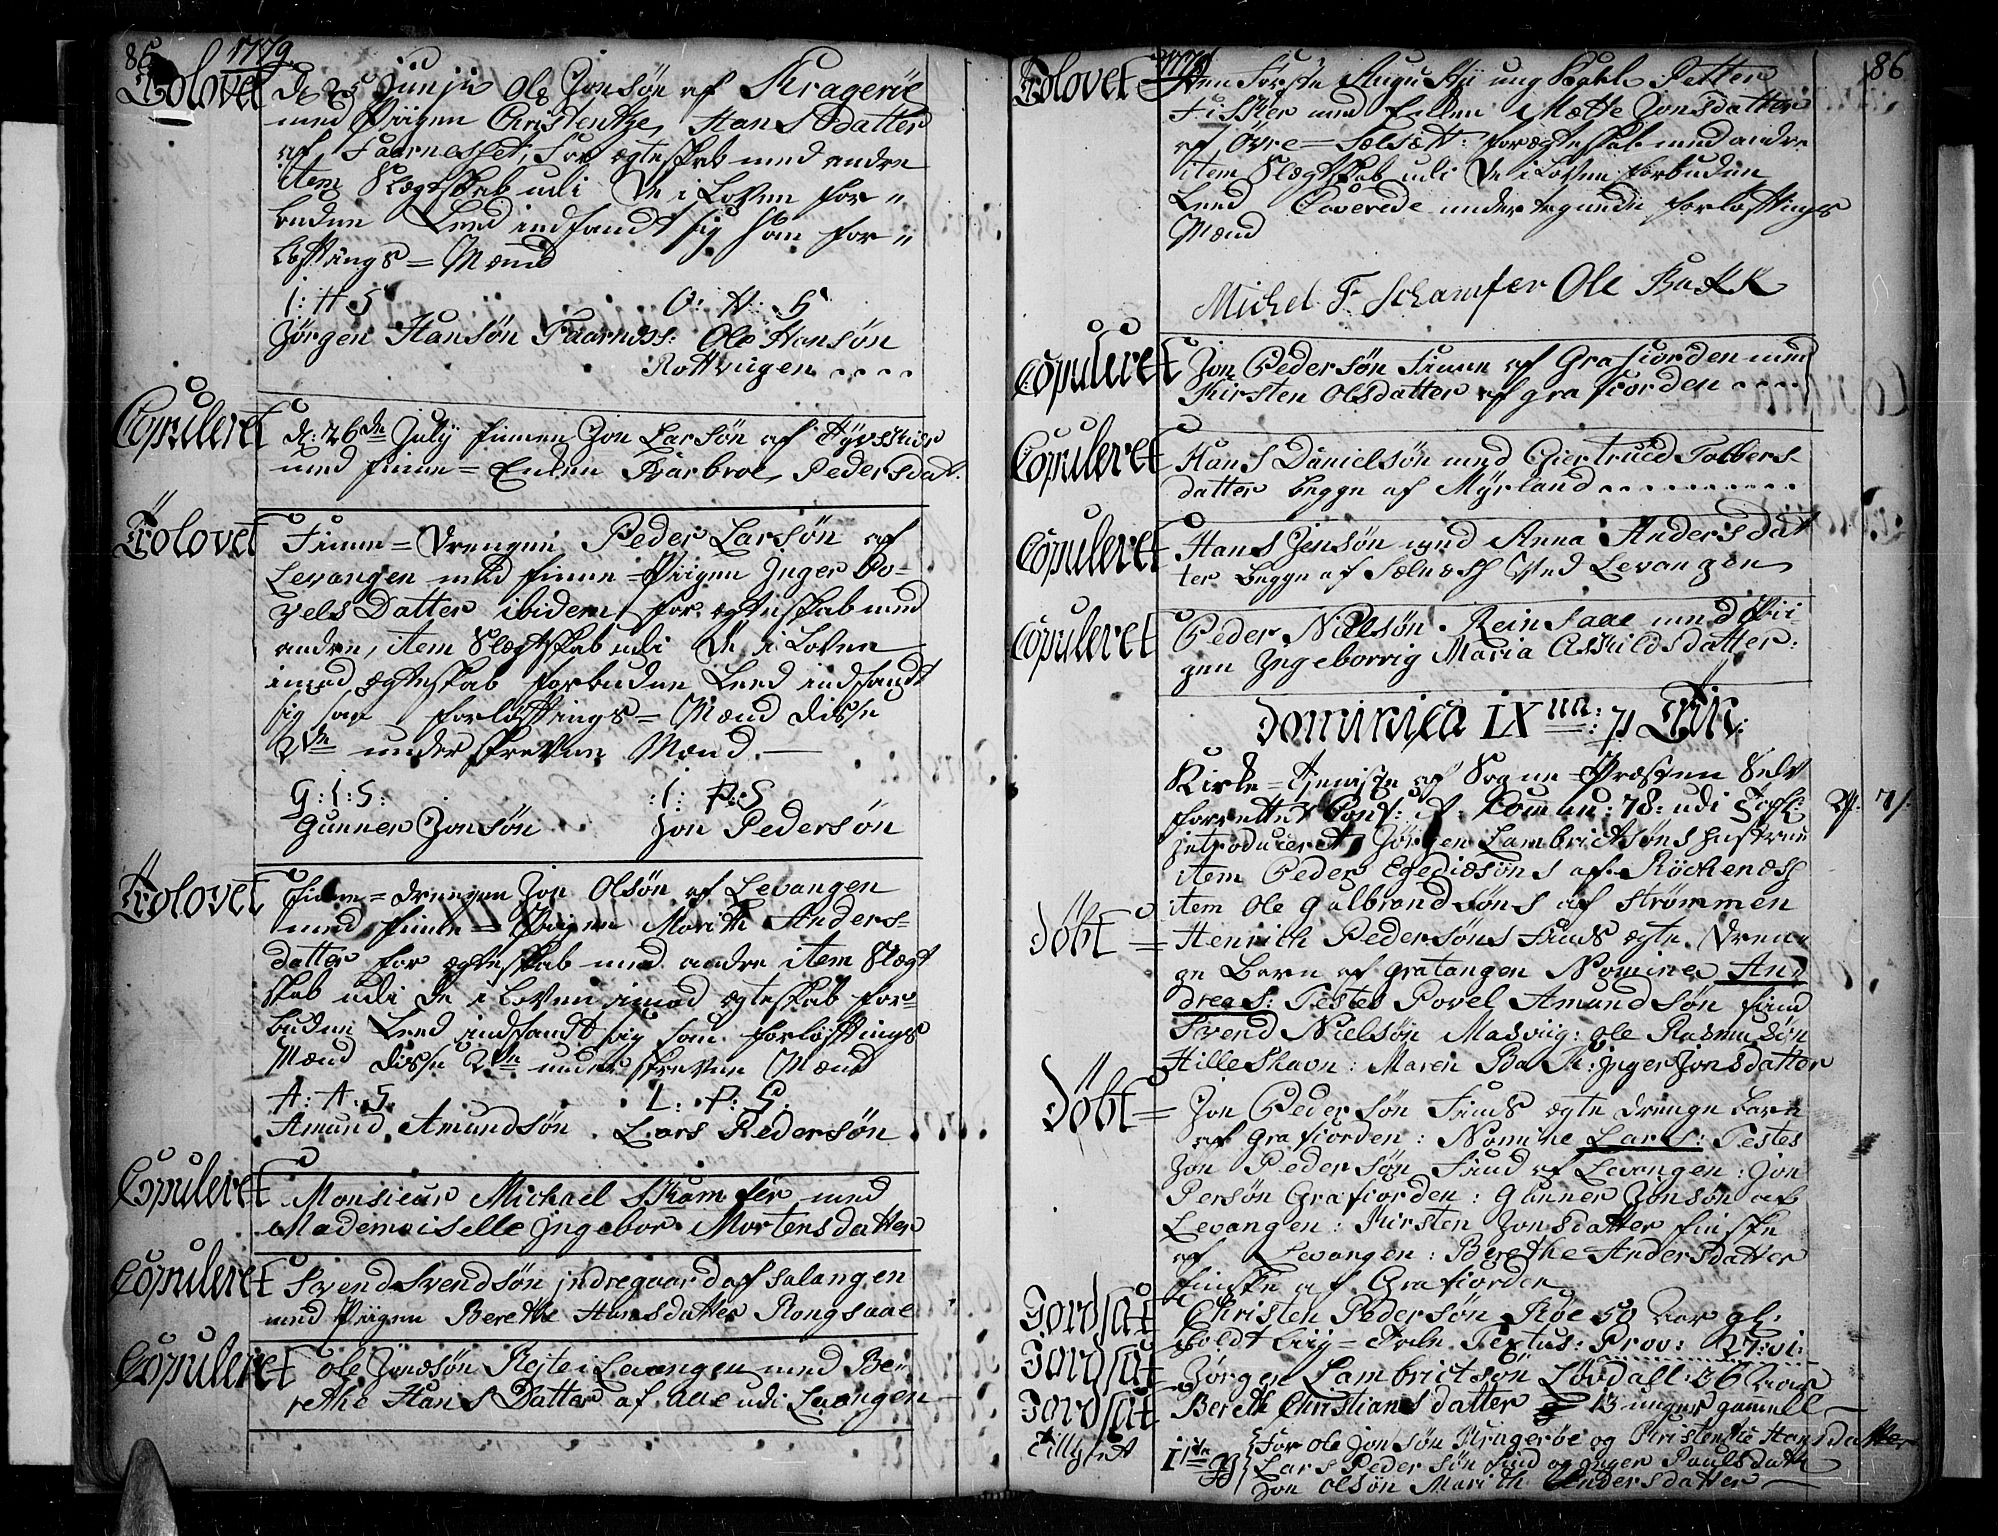 85 1779
Trolovet
d. 25 Junji Ole Jonsøn af Kragerøe
med Piigen Christentze Hans Datter
af Faarnesset, for ægteskab med andre
item Slægtskab udi De i Loven for-
buden Leed indfandt sig som for-
løftings = Mænd
I: H: S O: H: S
Jørgen Hansøn Faarness: Ole Hansøn
Rottviigen
Copuleret
d: 26de July finnen Jon Larsøn af
med finne = Enken Barbroe Pedersdat.
Trolovet
Finne = Drengen Peder Larsøn af
Levangen med finne = Piigen Inger Po-
vels Datter ibidem for ægteskab med
andre, item Slægtskab udi De i Loven
imod ægteskab forbuden Leed indfandt
sig som forløftings = Mænd disse
2de underskrevne Mænd.
G: I: S: :I: P: S
Gunner Jonsøn Jon Pedersøn
Trolovet
Finne = drengen Jon Olsøn af Levangen
med finne = Piigen Marith Anders-
datter for ægteskab med andre item Slægt
skab udi De i Loven imod ægteskab for-
buden Leed indfandt sig som forløftings
Mænd disse 2de underskrevne Mænd
A: A: S. : L: P: S:
Amund Amundsøn. Lars Pedersøn
Copuleret
Monsieur Michael Skamfer med
Mademoiselle Ingebor Mortensdatter
Copuleret
Svend Svendsøn indregaard af salangen
med Piigen Berethe Hansdatter Rongsaae
Copuleret
Ole Jonsøn Rejte i Levangen med Be-
rethe Hans Datter af Aae udi Lavangen
86
Trolovet
den Første Augustij ung Karl Petter
Fisker med Enken Mætte Jonsdatter
af Øvre = Sælsætt: for ægteskab med andre
item Slægtskab udi De i Loven forbuden
Leed Caverede undertegnede forløftings
Mænd
Michel F Schamfer Ole Bakk
Copuleret
Jon Pedersøn Finne af Grafiorden med
Kirsten Olsdatter af grafiorden
Copuleret
Hans Danielsøn med Giertrued Tolbers-
datter begge af Myrland
Copuleret
Hans Jensøn med Anna Andersdat
ter begge af Sælnæss ved Levangen
Copuleret
Peder Nielsøn Reinsaae med Pii-
gen Ingeborrig Maria Askildsdatter:
Dominica IXna: p Trin:
Kirke = Tjeniste af Sogne Præsten Selv
forrettet Conf: d. Commun: 78: udi
introduceret Jørgen Lambrictsøns Hustrue
item Peder Egediøsøns af Røckenæss
item Ole Gulbrandsøns af Strømmen
Døbt =
Henrich Pedersøns Fins ægte Dren-
ge Barn af gratangen Nomine An-
dreas: Testes Povel Amundsøn find
Svend Nielsøn Masviig: Ole Rasmusøn
Hilleshavn: Maren Bakk: Inger Jonsdatter
Døbt =
Jon Pedersøn Fins ægte Drenge barn
af Grafiorden: Nomine Lars: Testes
Jon Pedersøn Find af Levangen: Jon
Persøn Grafiorden: Gunner Jonsøn af
Levangen: Kirsten Jonsdatter finske
af Levangen: Berethe Andersdatter
finske af Grafiorden
Jordsat
Christen Pedersøn Røe 50 aar gl:
Textus: Prov: 27: v1:
Jordsat
Jørgen Lambrictsøn Løvdall: 36 aar
Jordsat
Bereth Christiansdatter 13 uger gamell
Tillyst
1ste g
For Ole Jonsøn Kragerøe og Kristentze Hansdatter
Lars Pedersøn find og Inger Paulsdatt
Jon Olsøn Marith Andersdatter